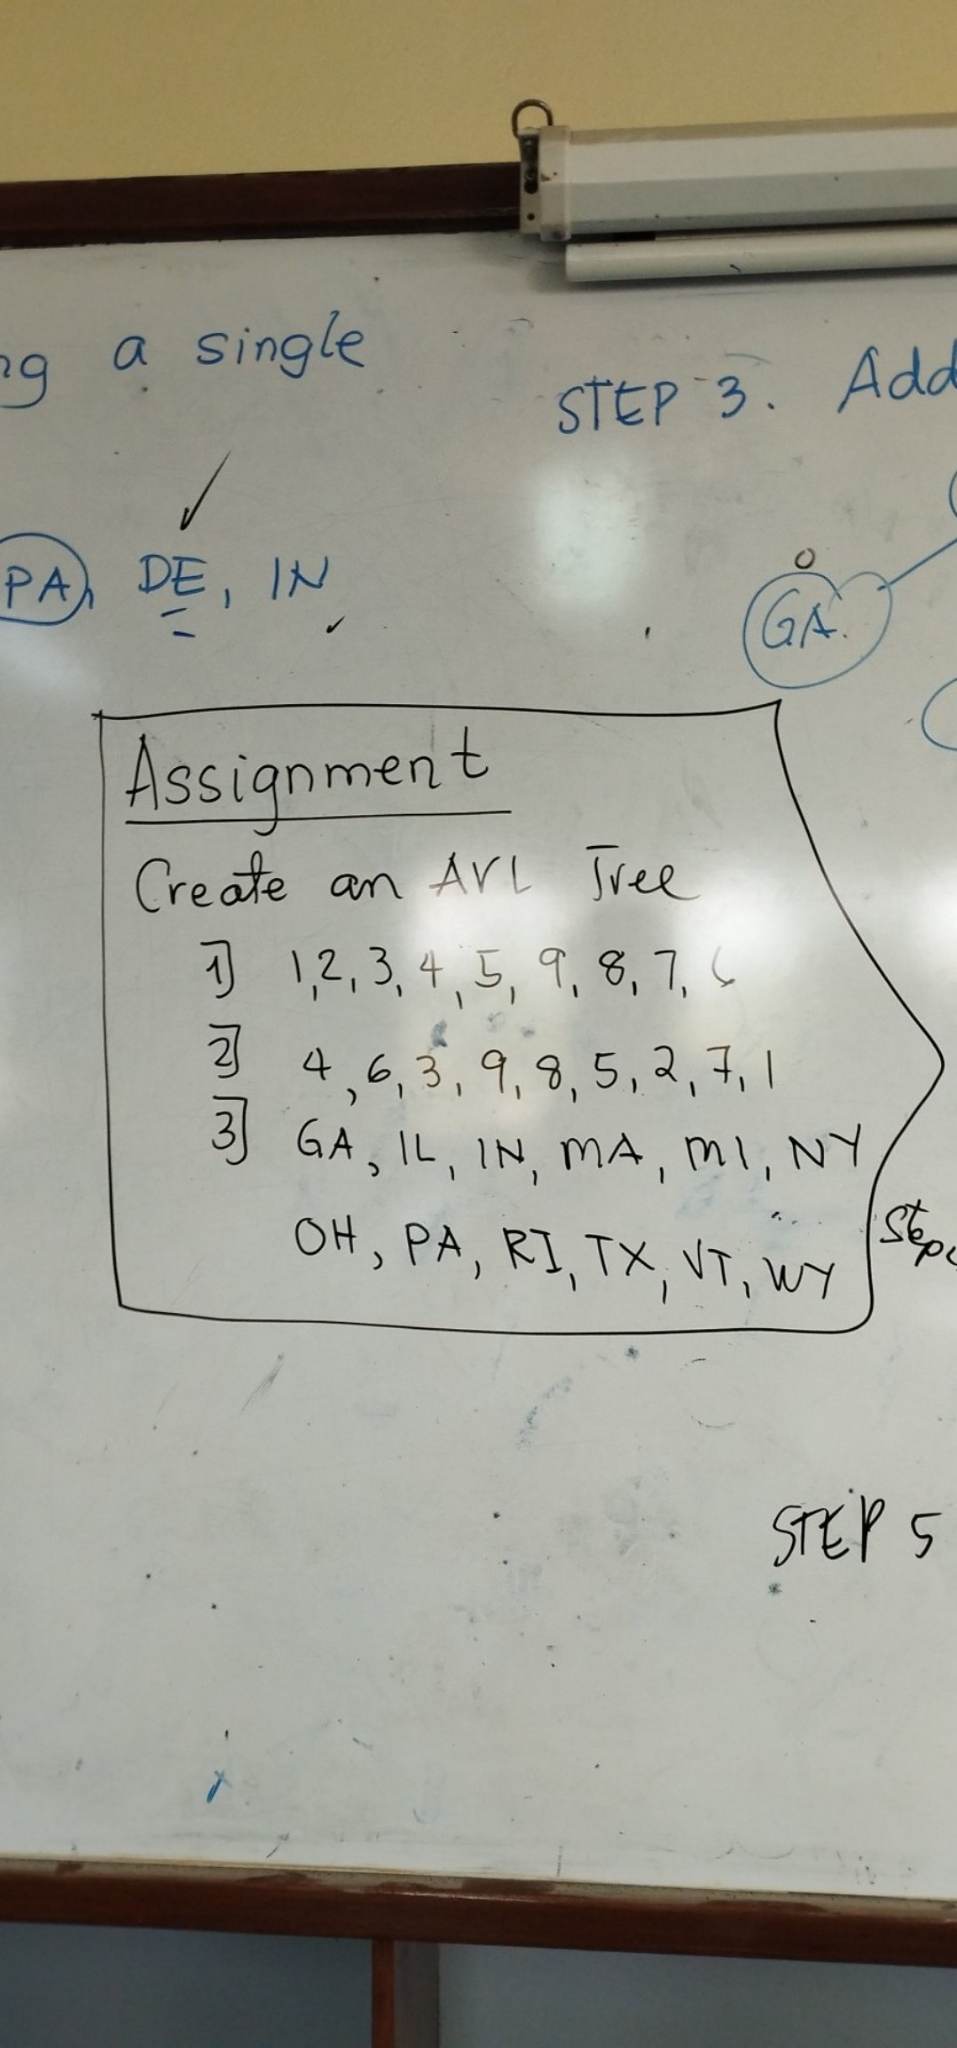 ng a single
STEP 3. Add
PA, DE, IN
O
GA.
Assignment
Create an AVL Tree
1] 1,2,3,4,5,9,8,7,6
2] 4,6,3,9,8,5,2,7,1
3] GA, IL, IN, MA, MI, NY
OH, PA, RI, TX, VT, WY
Step
STEP 5